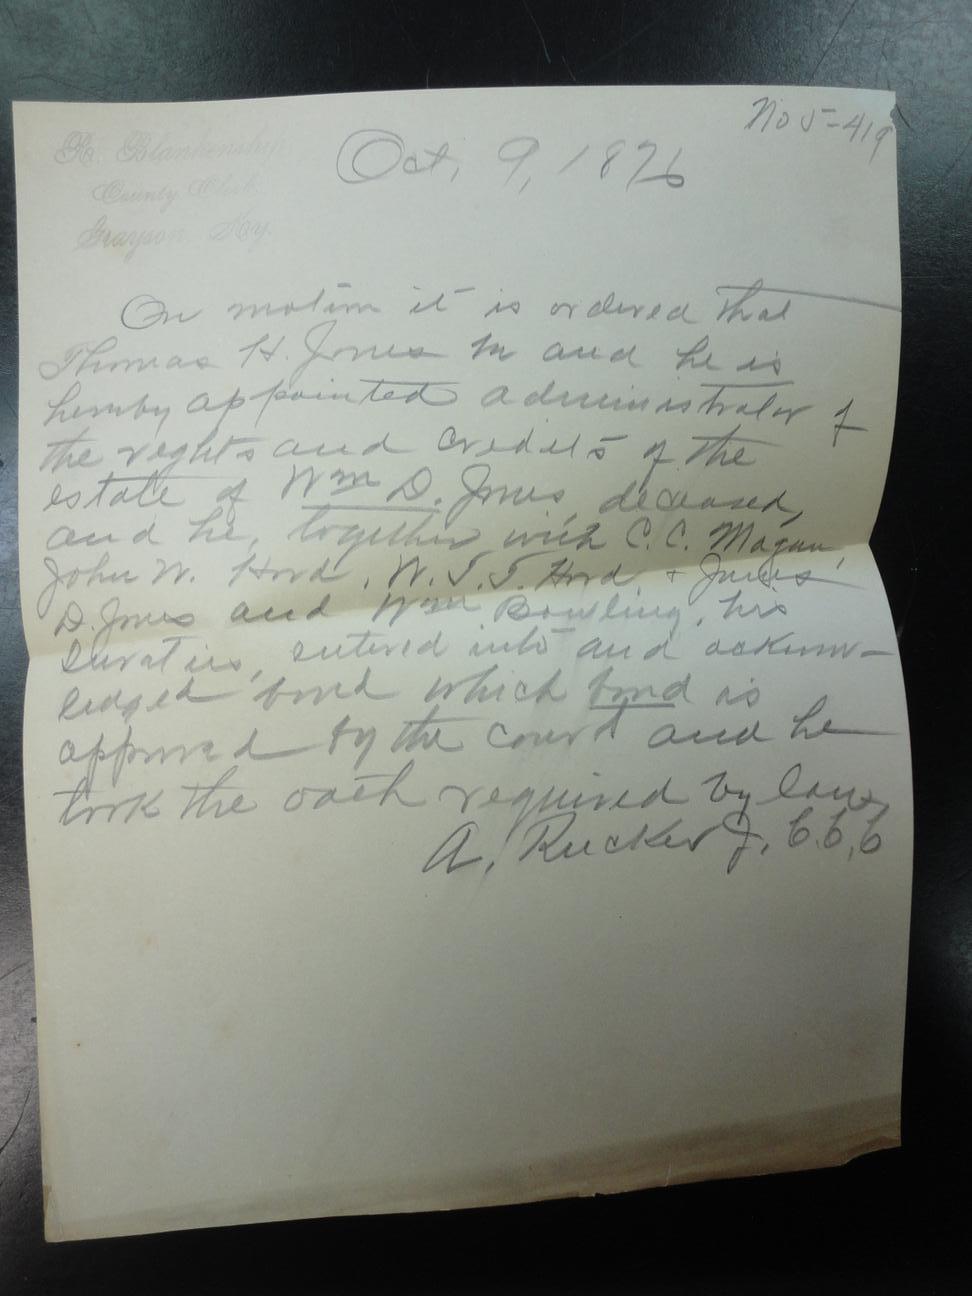 No 5-419
R. Blankenship
County Clerk
Grayson, Ky.
Oct, 9, 1876
On motion it is ordered that
Thomas H. Jones be and he is
hereby appointed administrator of
the rights and credits of the
estate of Wm D. Jones, deceased,
and he, together with C. C. Magan,
John W. Hord, W. T. T. Hord + James
D. Jones and Wm Bowling, his
sureties, entered into and acknow-
ledged bond which bond is
approved by the court and he
took the oath required by law,
A. Rucker J. C.C.C